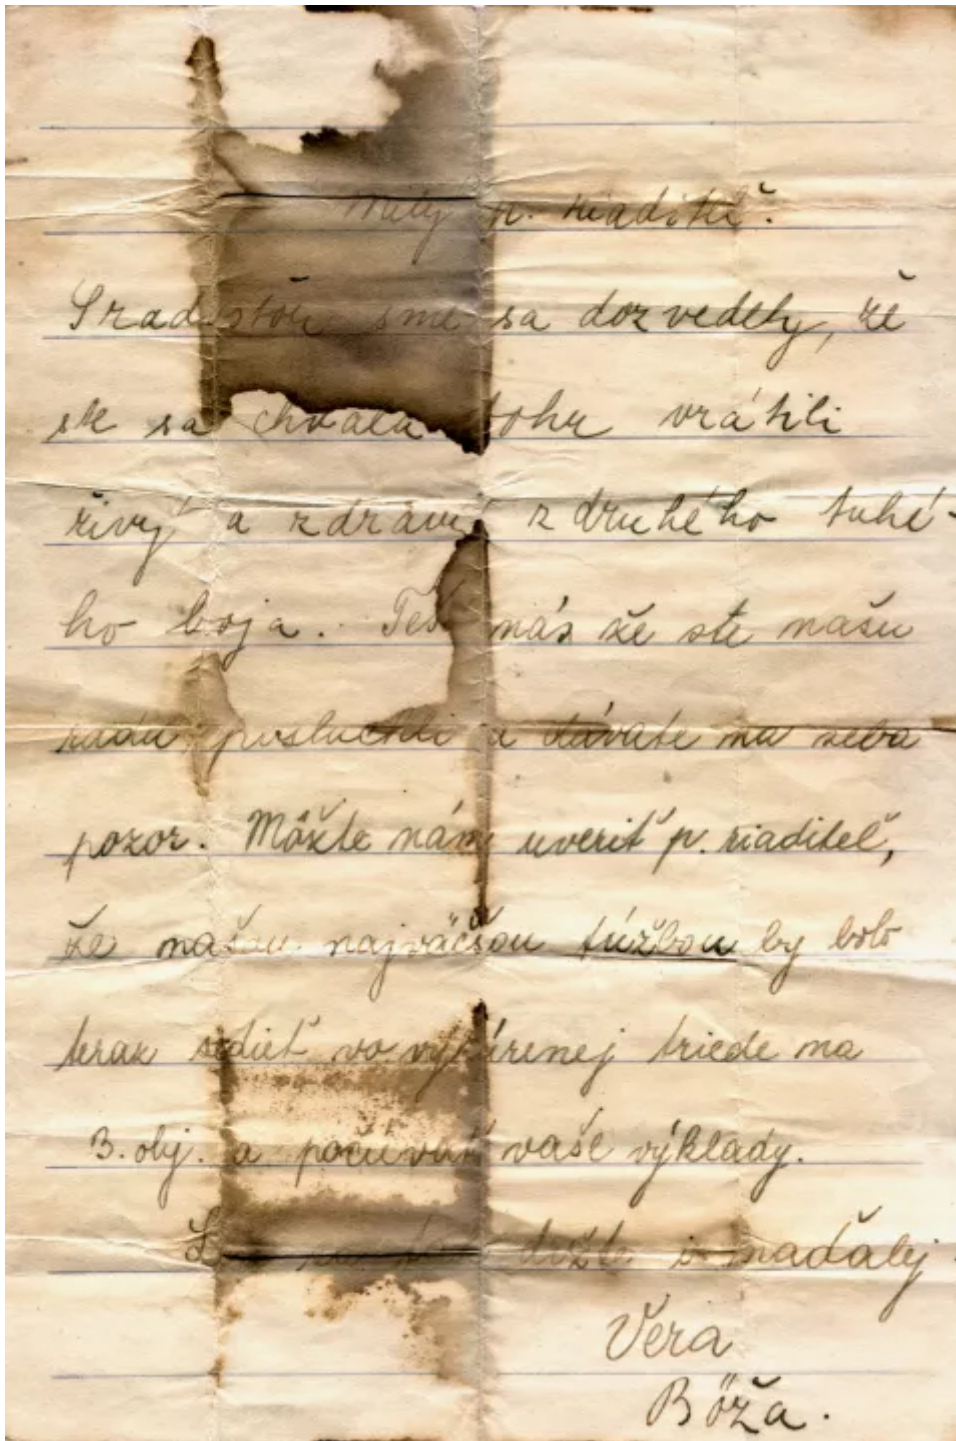 Milý p. riaditeľ.
S radosťou sme sa dozvedely, že
ste sa chvála bohu vrátili
živý a zdravý z druhého tuhé-
ho boja. Teší nás že ste našu
radu posluchli a dávate na seba
pozor. Môžte nám uveriť p. riaditeľ,
že našou najväčšou túžbou by bolo
teraz sedieť vo vykúrenej triede na
3. obj. a počúvať vaše výklady.
držte i naďalej
Vera
Böža.